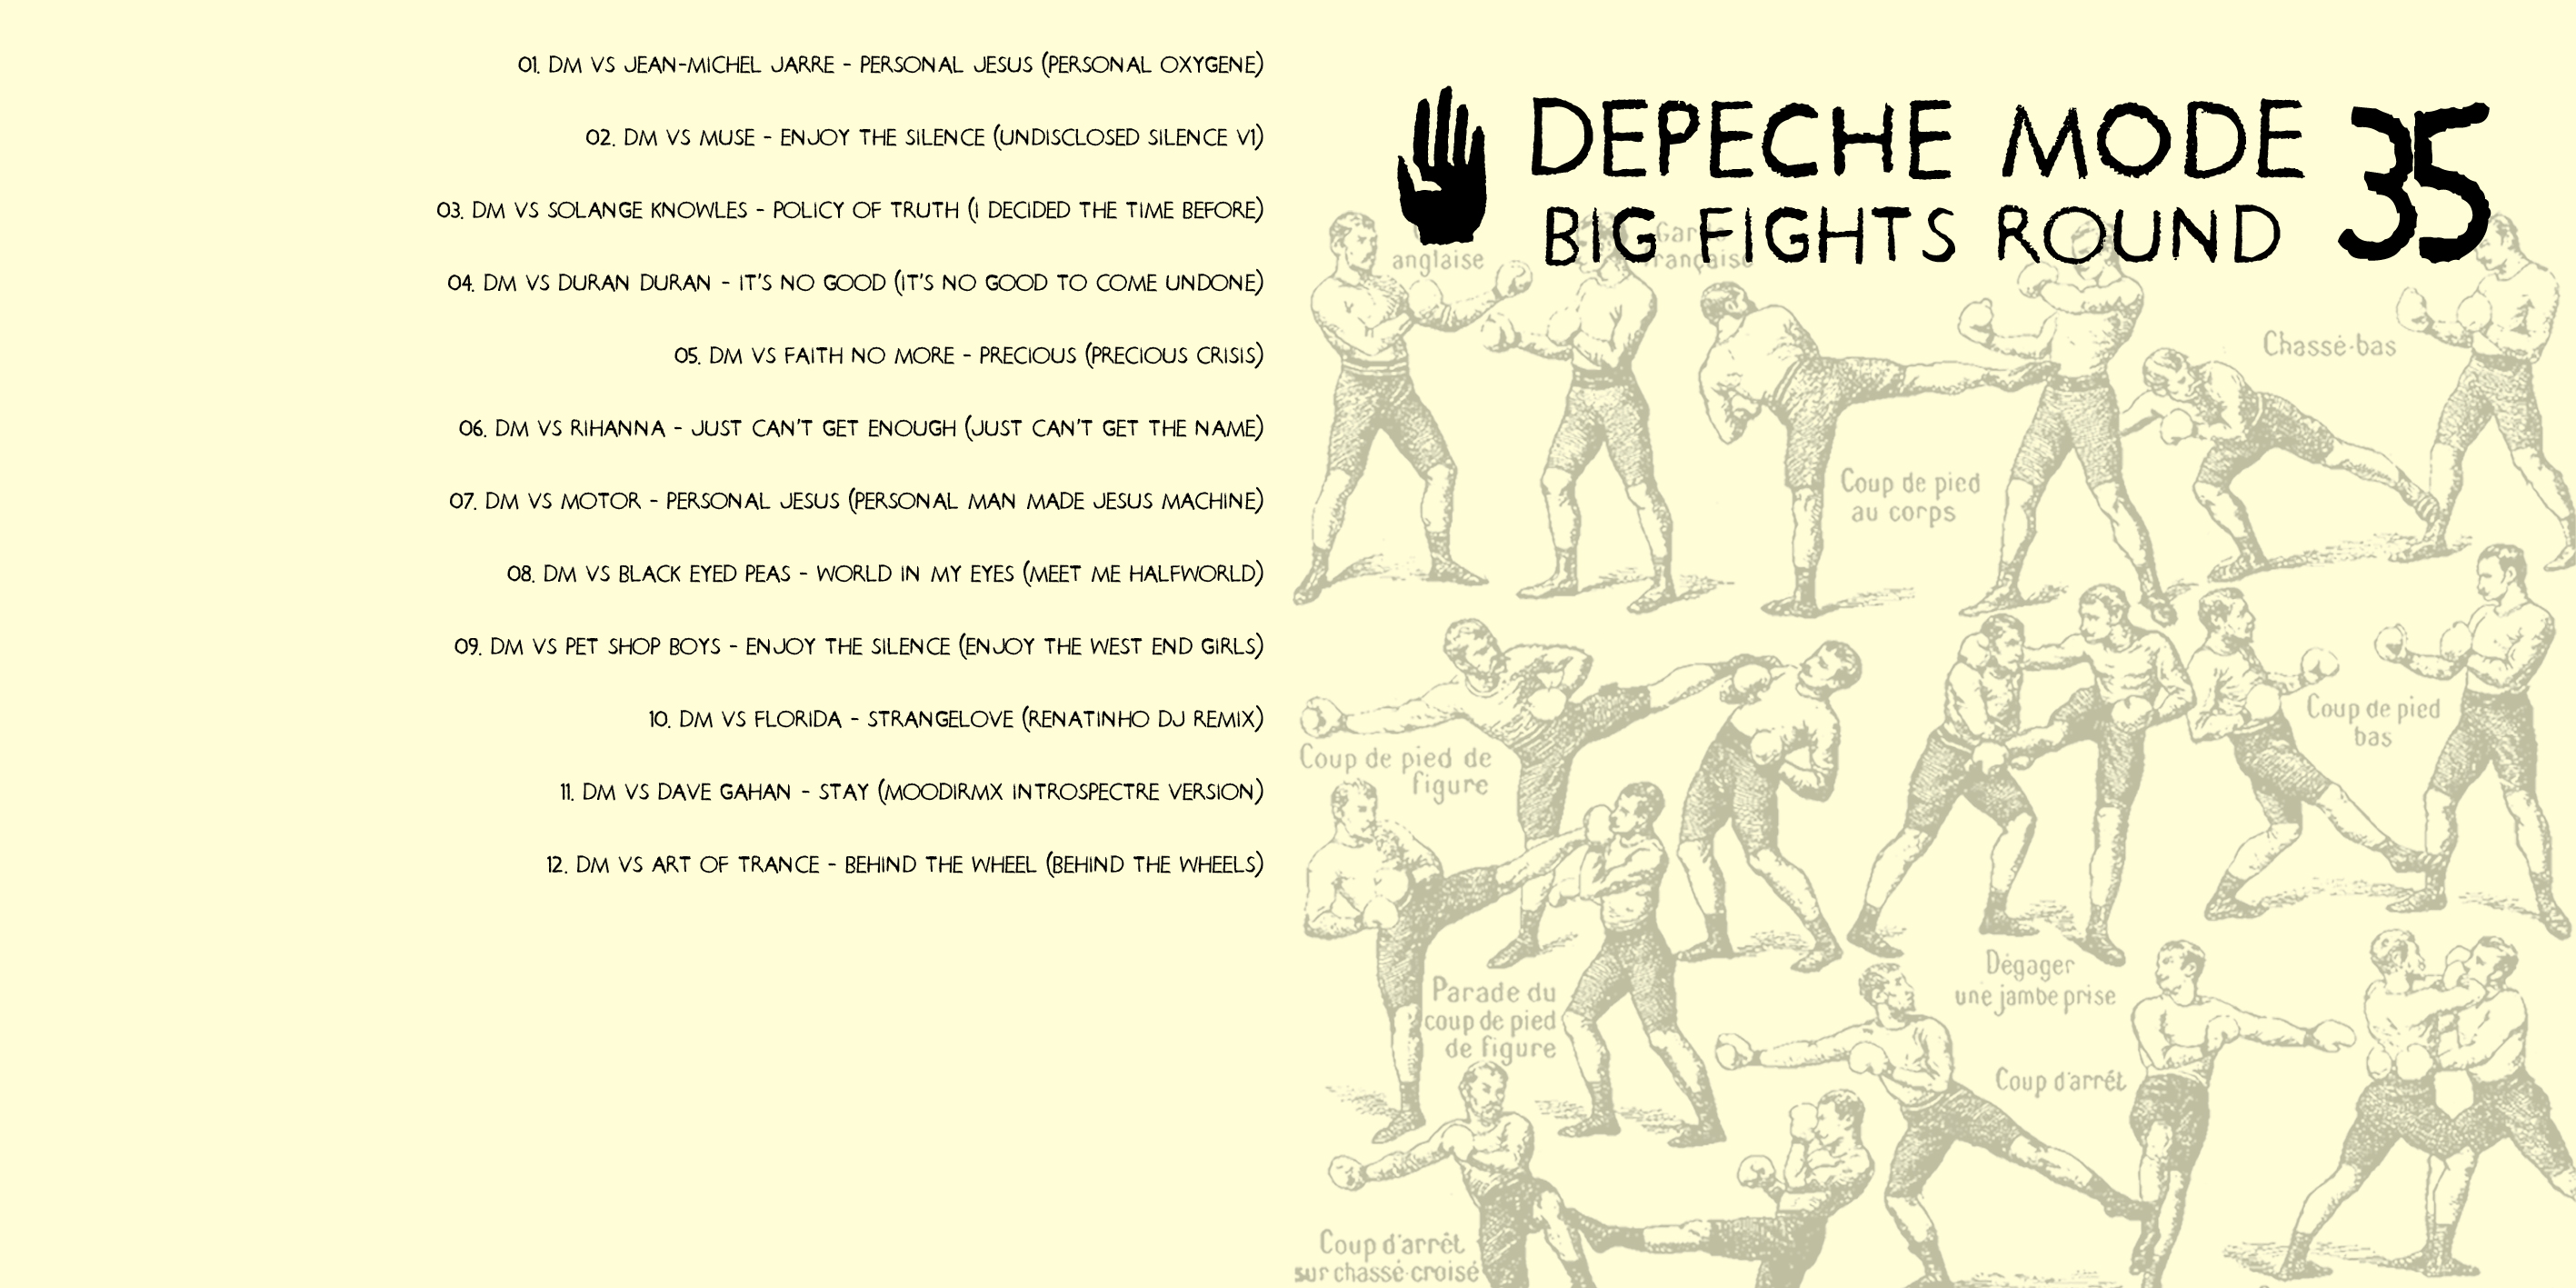 01. DM VS JEAN-MICHEL JARRE - PERSONAL JESUS (PERSONAL OXYGENE)
02. DM VS MUSE - ENJOY THE SILENCE (UNDISCLOSED SILENCE V1)
03. DM VS SOLANGE KNOWLES - POLICY OF TRUTH (I DECIDED THE TIME BEFORE)
04. DM VS DURAN DURAN - IT'S NO GOOD (IT'S NO GOOD TO COME UNDONE)
05. DM VS FAITH NO MORE - PRECIOUS (PRECIOUS CRISIS)
06. DM VS RIHANNA - JUST CAN'T GET ENOUGH (JUST CAN'T GET THE NAME)
07. DM VS MOTOR - PERSONAL JESUS (PERSONAL MAN MADE JESUS MACHINE)
08. DM VS BLACK EYED PEAS - WORLD IN MY EYES (MEET ME HALFWORLD)
09. DM VS PET SHOP BOYS - ENJOY THE SILENCE (ENJOY THE WEST END GIRLS)
10. DM VS FLORIDA - STRANGELOVE (RENATINHO DJ REMIX)
11. DM VS DAVE GAHAN - STAY (MOODIRMX INTROSPECTRE VERSION)
12. DM VS ART OF TRANCE - BEHIND THE WHEEL (BEHIND THE WHEELS)
DEPECHE MODE 35
BIG FIGHTS ROUND
anglaise
Garde
française
Chassé-bas
Coup de pied
au corps
Coup de pied
bas
Coup de pied de
figure
Dégager
une jambe prise
Parade du
coup de pied
de figure
Coup d'arrêt
Coup d'arrêt
sur chassé-croisé